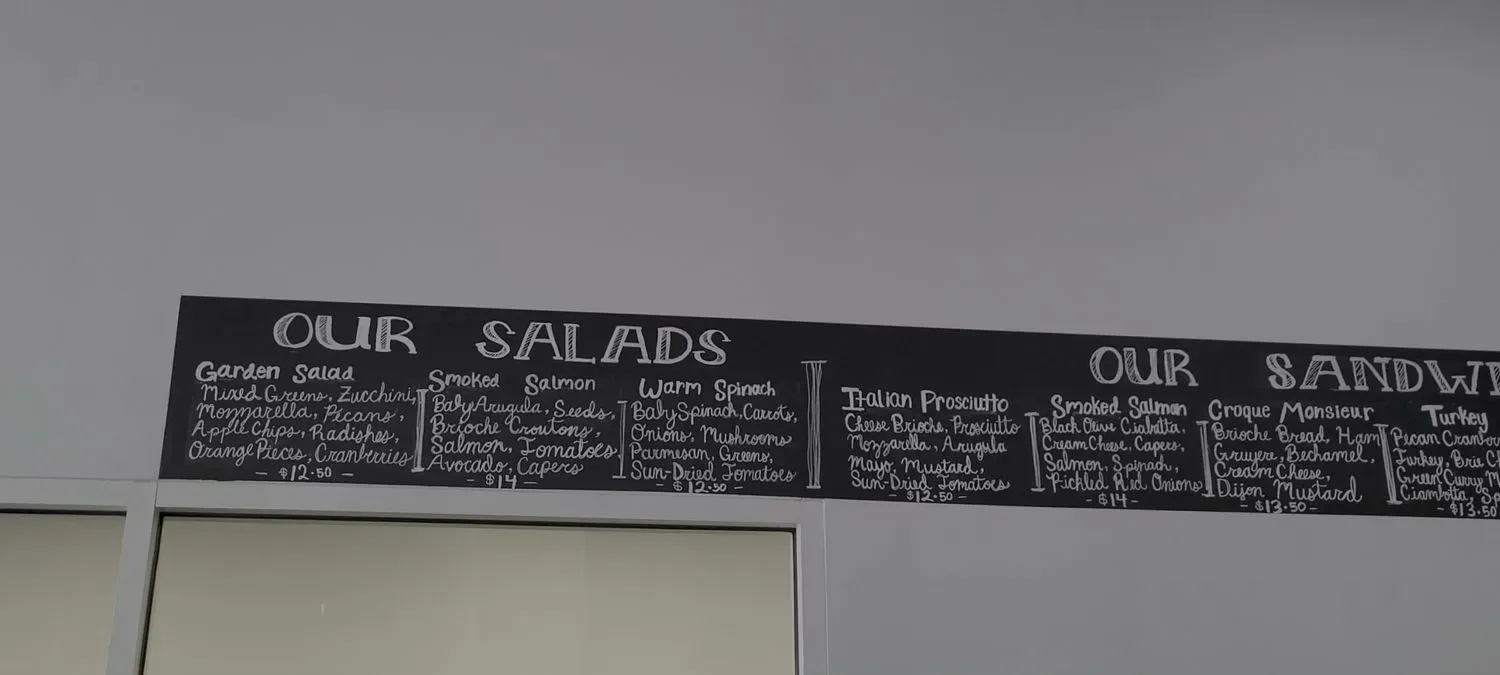 OUR SALADS
Garden Salad
Mixed Greens, Zucchini,
Mozzarella, Picans,
Apple Chips, Radishes,
Orange Pieces, Cranberries
- $12.50 -
Smoked Salmon
Baby Arugula, Seeds,
Brioche Croutons,
Salmon, Tomatoes,
Avocado, Capers
- $14 -
Warm Spinach
Baby Spinach, Carrots,
Onions, Mushrooms
Parmesan, Greens,
Sun-Dried Tomatoes
- $12.50 -
OUR SANDWI
Italian Prosciutto
Cheese Brioche, Prosciutto
Mozzarella, Arugula
Mayo, Mustard,
Sun-Dried Tomatoes
- $12.50 -
Smoked Salmon
Black Olive Ciabatta,
Cream Cheese, Capers,
Salmon, Spinach,
Pickled Red Onions
- $14 -
Croque Monsieur
Brioche Bread, Ham
Gruyere, Bechamel,
Cream Cheese,
Dijon Mustard
- $13.50 -
Turkey
Pecan Cranber
Turkey, Brie Ch
Green Curry M
Ciambotta, Sp
- $13.50